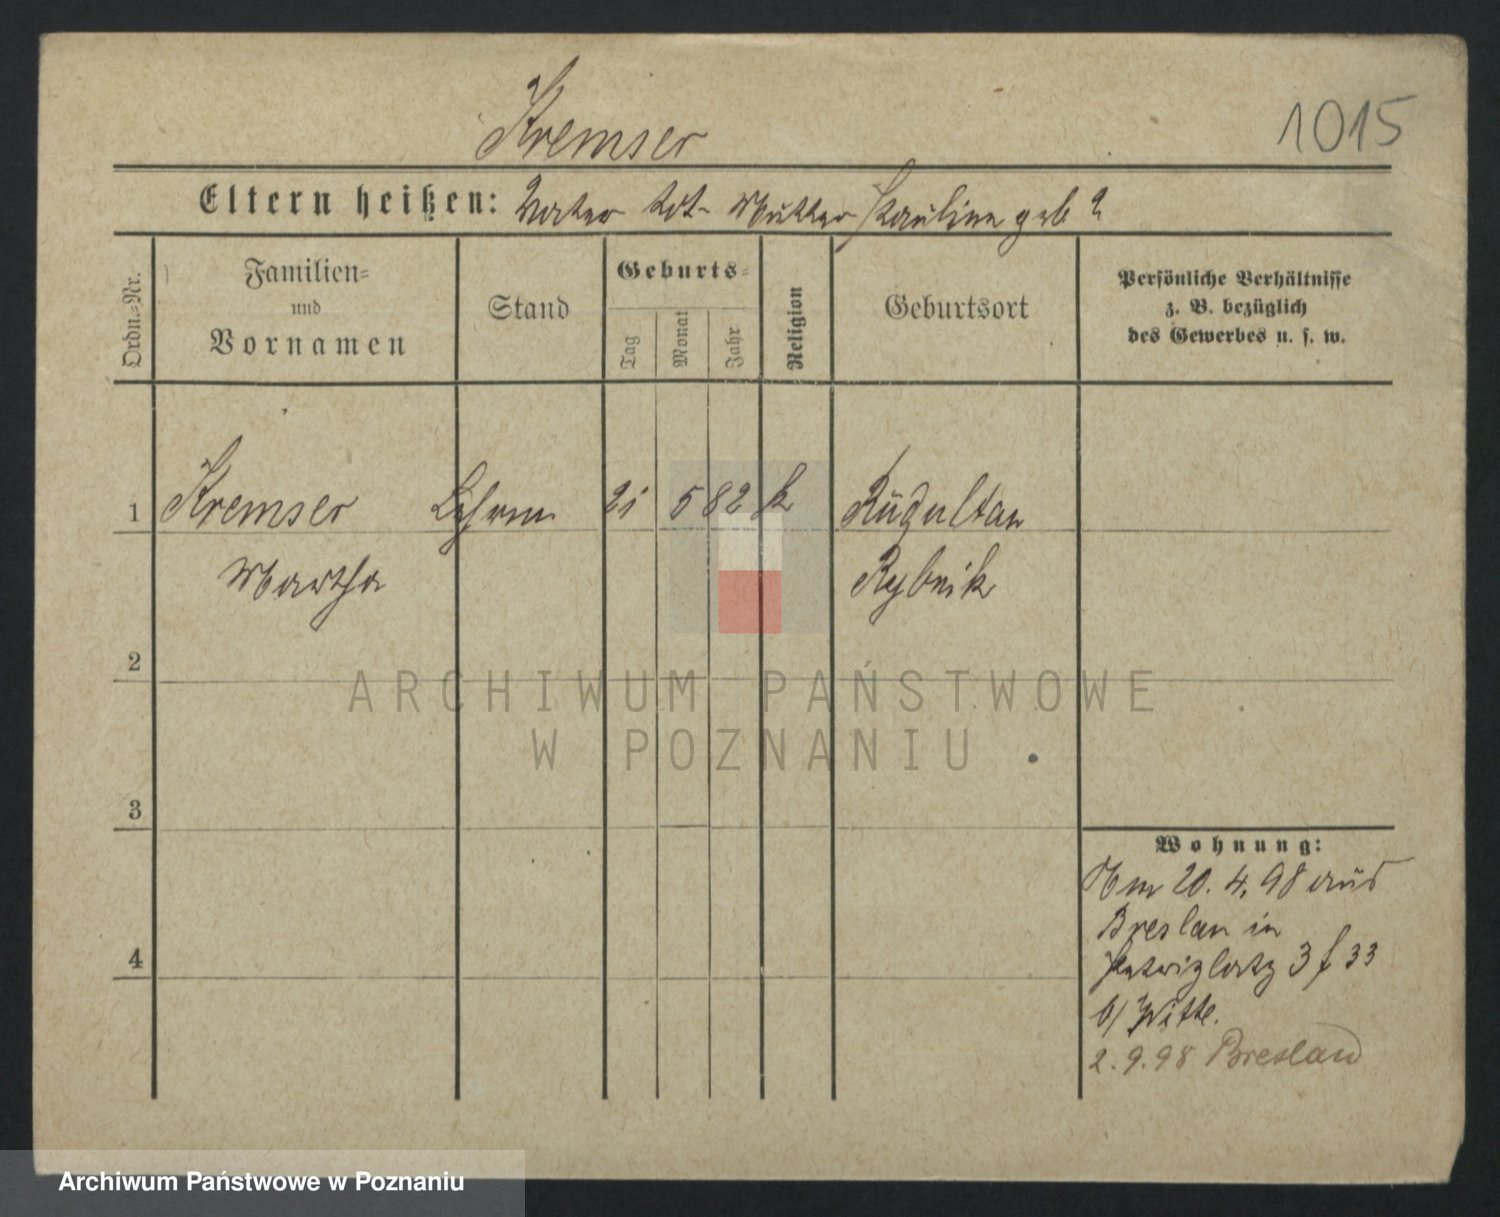 Kremser
1015
Eltern heißen: Vater tot. Mutter Pauline geb ?
Ordn.=Nr.
Familien=
und
Vornamen
Stand
Geburts=
Tag
Monat
Jahr
Religion
Geburtsort
Persönliche Verhältnisse
z. B. bezüglich
des Gewerbes u. s. w.
1 Kremser 21 5 82 k
Martha Rybnik
2
ARCHIWUM PAŃSTWOWE
W POZNANIU
3
4
Wohnung:
20. 4. 98 aus
Breslau in
3 f 33
b/ Witte.
2. 9. 98 Breslau
Archiwum Państwowe w Poznaniu